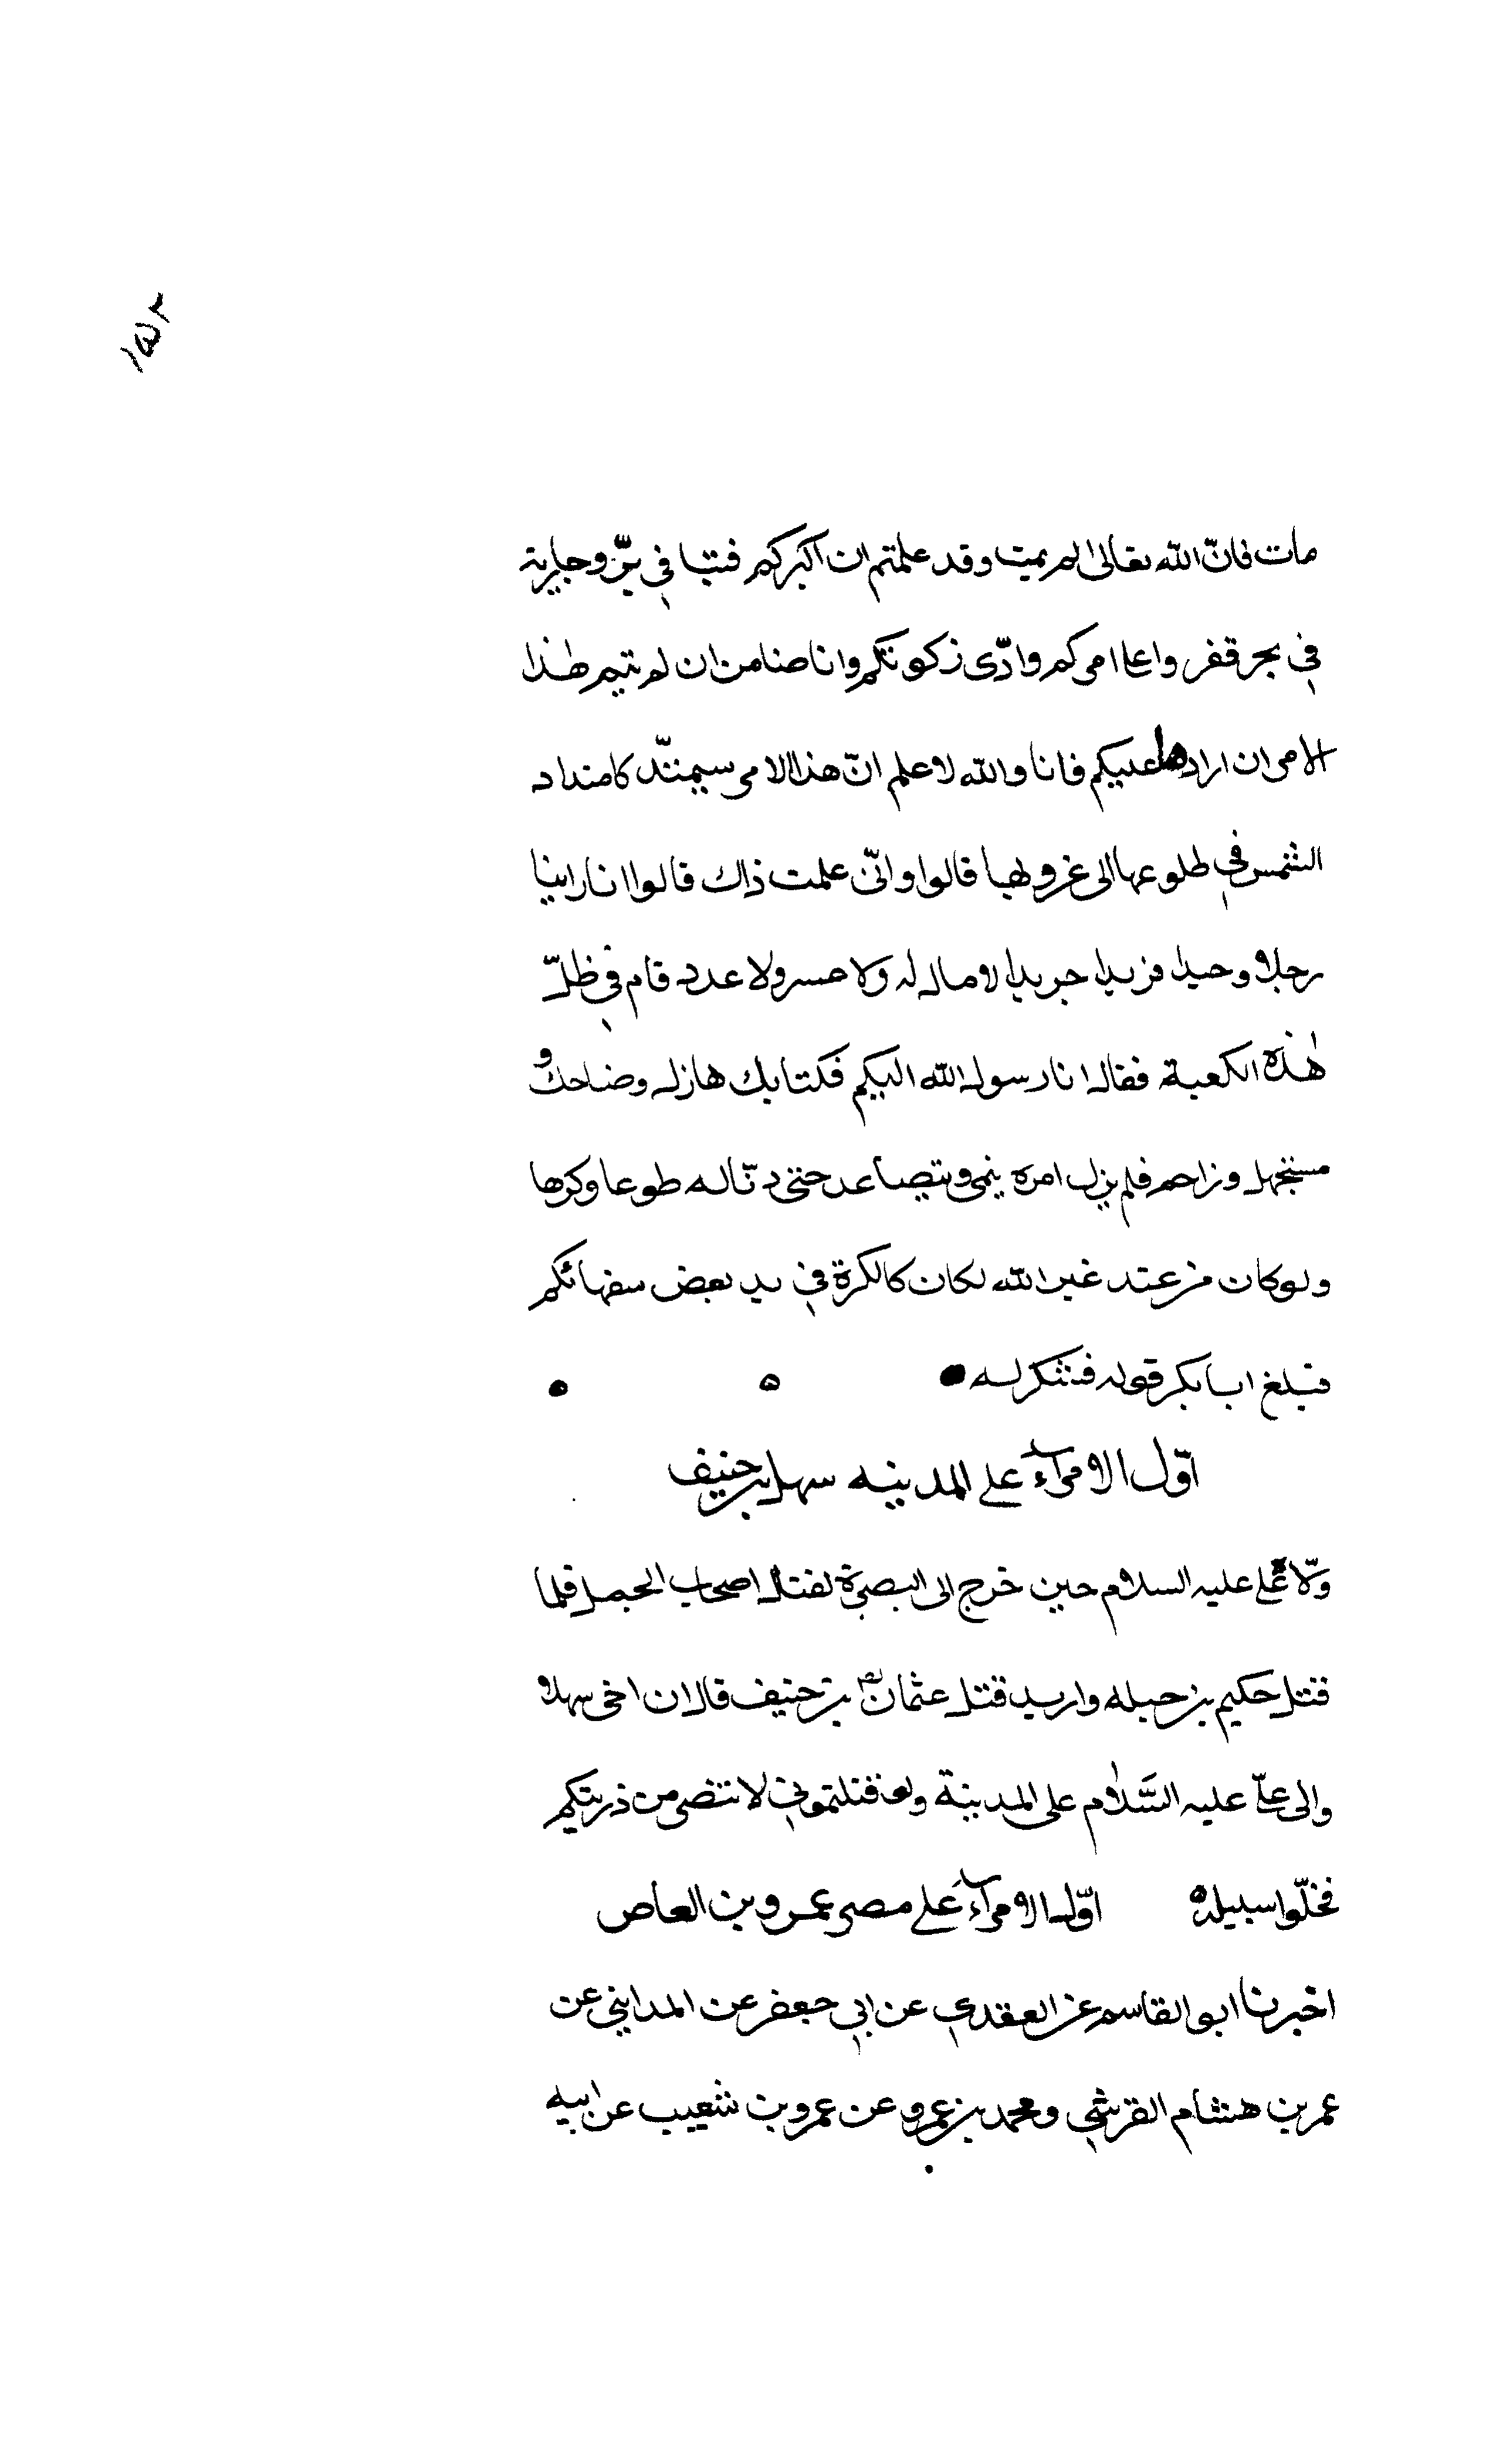 ١٥٢
مات فانّ الله تعالى لم يمت وقد علمتم ان اكبركم قتبا في برّ وجارية
في بحر قفر واعا امركم وادّى زكوتكم وانا ضامن ان لم يتم هذا
الامر ان اردها عليكم فانا والله لاعلم انّ هذا الامر سيمتدّ كامتداد
الشمس في طلوعها الى غروبها قالوا وانّى علمت ذاك قالوا انا راينا
رجلا وحيدا فريدا جريدا لا مال له ولا حسر ولا عدد قام في ظلّ
هذه الكعبة فقال انا رسول الله اليكم فكنا بك هازل وضاحك و
مستجهل وزاحم فلم يزل امره ينمى ويتصاعد حتى دنّا له طوعا وكرها
ولو كان من عند غير الله لكان كالكرة في يد بعض سفهائكم
فبلغ ابا بكر قوله فشكر له
اوّل الامراء على المدينه سهل بن حنيف
ولّاه علي عليه السلام حين خرج الى البصرة لقتال اصحاب الجمل فلما
قتل حكيم بن جبله واريد قتل عثمان بن حنيف قال ان اخى سهلا
والى علىّ عليه السّلام على المدينة ولو قتلتموني لانتصر من ذريتكم
فخلّوا سبيله اوّل الامراء على مصر عمرو بن العاص
اخبرنا ابو القاسم عن العقدي عن ابي جعفر عن المدايني عن
عمر بن هشام القرشي ومحمد بن عمرو عن عمرو بن شعيب عن ابيه